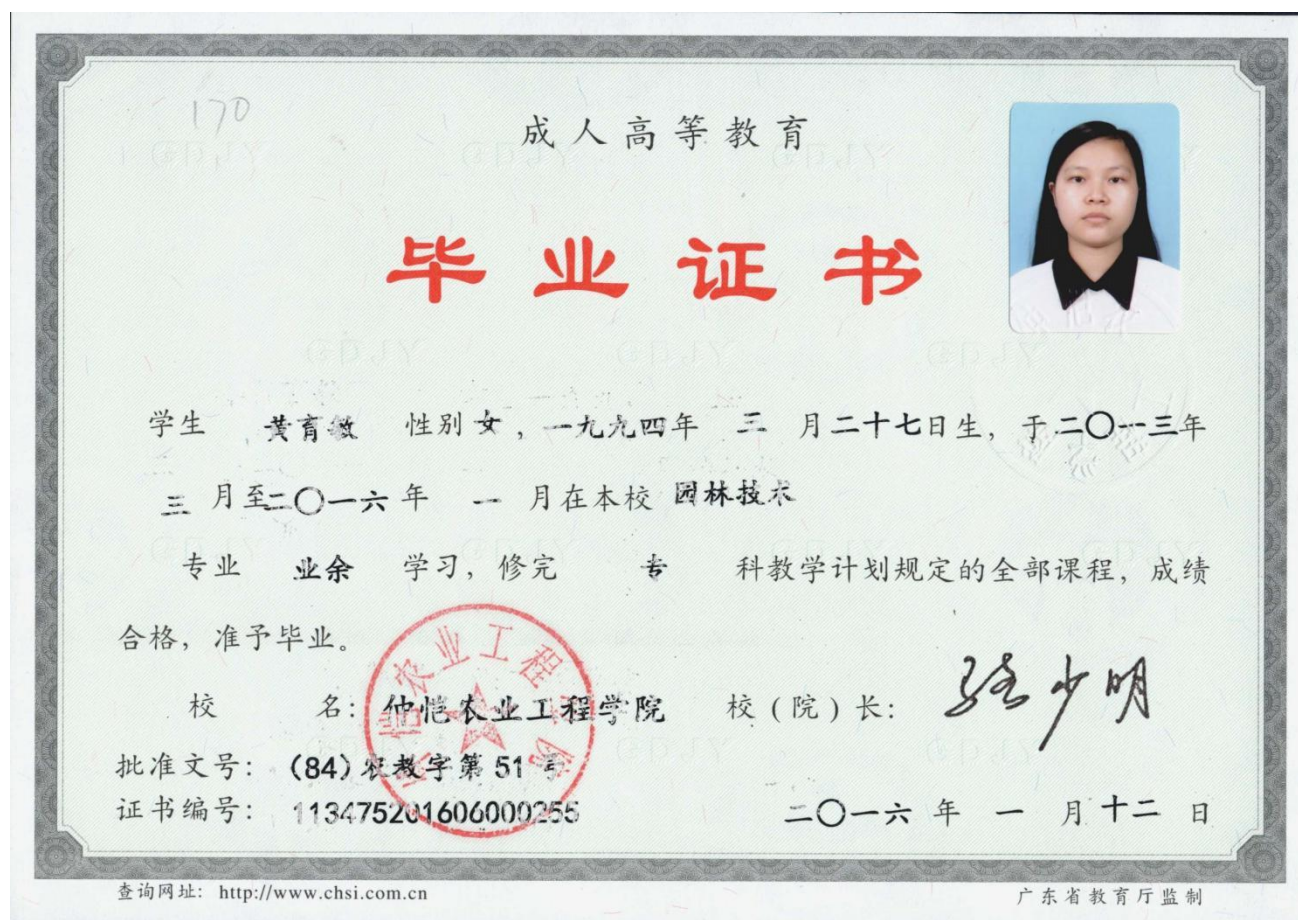 170
成人高等教育
毕业证书
学生 黄育敏 性别 女，一九九四年 三 月二十七日生，于二〇一三年
三 月至二〇一六年 一 月在本校 园林技术
专业 业余 学习，修完 专 科教学计划规定的全部课程，成绩
合格，准予毕业。
校 名：仲恺农业工程学院 校（院）长：骆少明
批准文号：（84）农教字第 51 号
证书编号：113475201606000255
二〇一六 年 一 月 十二 日
查询网址：http://www.chsi.com.cn
广东省教育厅监制